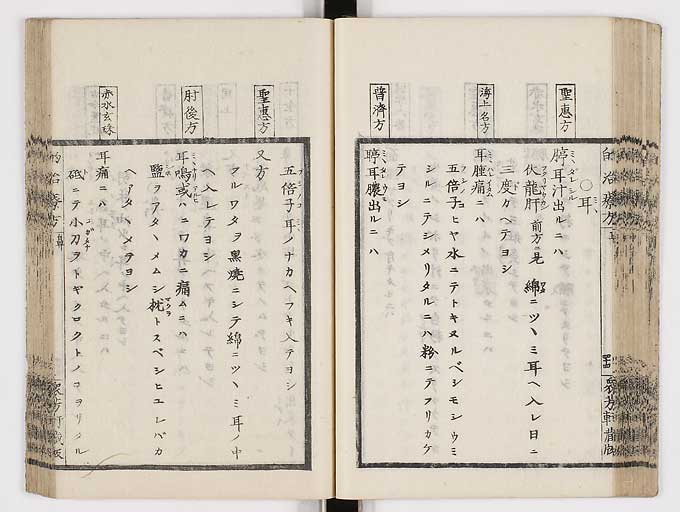 ○耳
聖惠方
聤耳汁出ルニハ
伏龍肝 前方ニ見 綿ニツヽミ耳ヘ入レ日ニ
三度カヘテヨシ
海上名方
耳腫痛ニハ
五倍子ヒヤ水ニテトキヌルベシモシウミ
シルニテシメリタルニハ粉ニテフリカケ
テヨシ
普濟方
聤耳膿出ルニハ
五倍子耳ノナカヘフキ入テヨシ
聖惠方
又方
フルワタヲ黒燒ニシテ綿ニツヽミ耳ノ中
ヘ入レテヨシ
肘後方
耳鳴或ハニワカニ痛ムニハ
鹽ヲフタヽメムシ枕トスベシヒユレバカ
ヘアタヽメテヨシ
赤水玄珠
耳痛ニハ
砥ニテ小刀ヲトギ